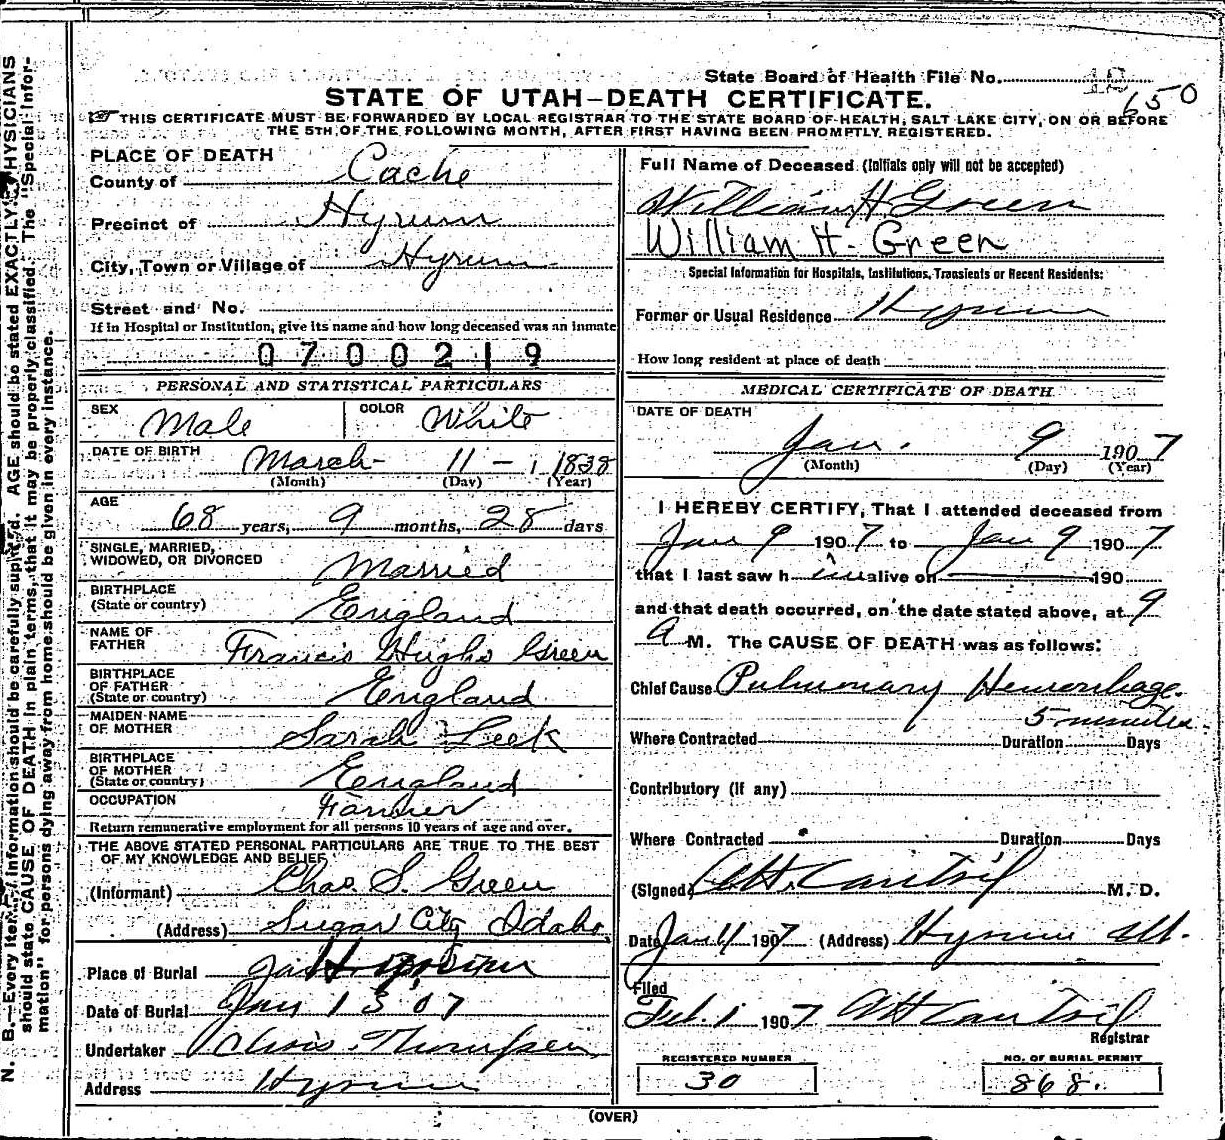 State Board of Health File No.
650
STATE OF UTAH—DEATH CERTIFICATE.
THIS CERTIFICATE MUST BE FORWARDED BY LOCAL REGISTRAR TO THE STATE BOARD OF HEALTH, SALT LAKE CITY, ON OR BEFORE
THE 5TH OF THE FOLLOWING MONTH, AFTER FIRST HAVING BEEN PROMPTLY REGISTERED.
PLACE OF DEATH
County of Cache
Precinct of Hyrum
City, Town or Village of Hyrum
Street and No.
If in Hospital or Institution, give its name and how long deceased was an inmate
0700219
PERSONAL AND STATISTICAL PARTICULARS
SEX Male COLOR White
DATE OF BIRTH March 11 1838
(Month) (Day) (Year)
AGE
68 years, 9 months, 28 days
SINGLE, MARRIED,
WIDOWED, OR DIVORCED Married
BIRTHPLACE
(State or country) England
NAME OF
FATHER Francis Hughs Green
BIRTHPLACE
OF FATHER
(State or country) England
MAIDEN NAME
OF MOTHER Sarah Leek
BIRTHPLACE
OF MOTHER
(State or country) England
OCCUPATION Farmer
Return remunerative employment for all persons 10 years of age and over.
THE ABOVE STATED PERSONAL PARTICULARS ARE TRUE TO THE BEST
OF MY KNOWLEDGE AND BELIEF
(Informant) Chas. S. Green
(Address) Sugar City Idaho
Place of Burial
Date of Burial Jan 13 07
Undertaker Thompson
Address Hyrum
Full Name of Deceased (Initials only will not be accepted)
William H Green
William H. Green
Special Information for Hospitals, Institutions, Transients or Recent Residents:
Former or Usual Residence Hyrum
How long resident at place of death
MEDICAL CERTIFICATE OF DEATH
DATE OF DEATH
Jan. 9 1907
(Month) (Day) (Year)
I HEREBY CERTIFY, That I attended deceased from
Jan 9 1907 to Jan 9 1907
that I last saw him alive on 190
and that death occurred, on the date stated above, at 9
A M. The CAUSE OF DEATH was as follows:
Chief Cause Pulmonary Hemorrhage.
5 minutes.
Where Contracted Duration Days
Contributory (If any)
Where Contracted Duration Days
(Signed) M. D.
Date Jan 11 1907 (Address) Hyrum Ut.
Filed
Feb. 1 1907
Registrar
REGISTERED NUMBER
30
NO. OF BURIAL PERMIT
868.
(OVER)
N. B.—Every item of information should be carefully supplied. AGE should be stated EXACTLY. PHYSICIANS
should state CAUSE OF DEATH in plain terms, that it may be properly classified. The "Special Infor-
mation" for persons dying away from home should be given in every instance.